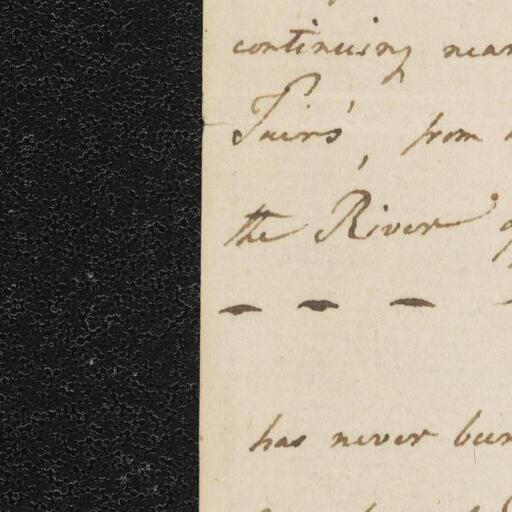 continuing near
from
the River
— — —
has never been